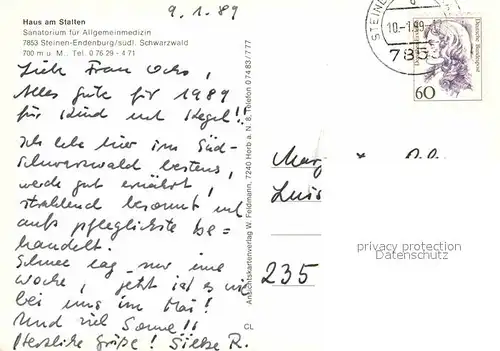 9.1.89
Haus am Stalten
Sanatorium für Allgemeinmedizin
7853 Steinen-Endenburg/südl. Schwarzwald
700 m u. M. Tel. 0 76 29 - 4 71
Liebe Frau
Alles gute für 1989
für Kind und Kegel!!
Ich lebe hier im Süd-
schwarzwald bestens,
werde gut ernährt,
strahlend besonnt und
aufs pfleglichste be=
handelt.
Schnee lag nur eine
Woche, jetzt ist es wie
bei uns im Mai!
Und viel Sonne!!
Herzliche Grüße! Silke R.
Ansichtskartenverlag W. Feldmann, 7240 Horb a. N. 8, Telefon 0 74 83 / 777
CL
STEINEN
10.-1.89.-12
7853
Deutsche Bundespost
60
Luis
235
privacy protection
Datenschutz